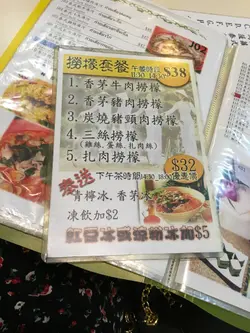 撈檬套餐 午餐時段 $38
1. 香茅牛肉撈檬
2. 香茅豬肉撈檬
3. 炭燒豬頸肉撈檬
4. 三絲撈檬
(雞絲、蛋絲、扎肉絲)
5. 扎肉撈檬
$32
下午茶時間14:30 - 18:00優惠價
青檸冰、香茅冰
凍飲加$2
紅豆冰 $5